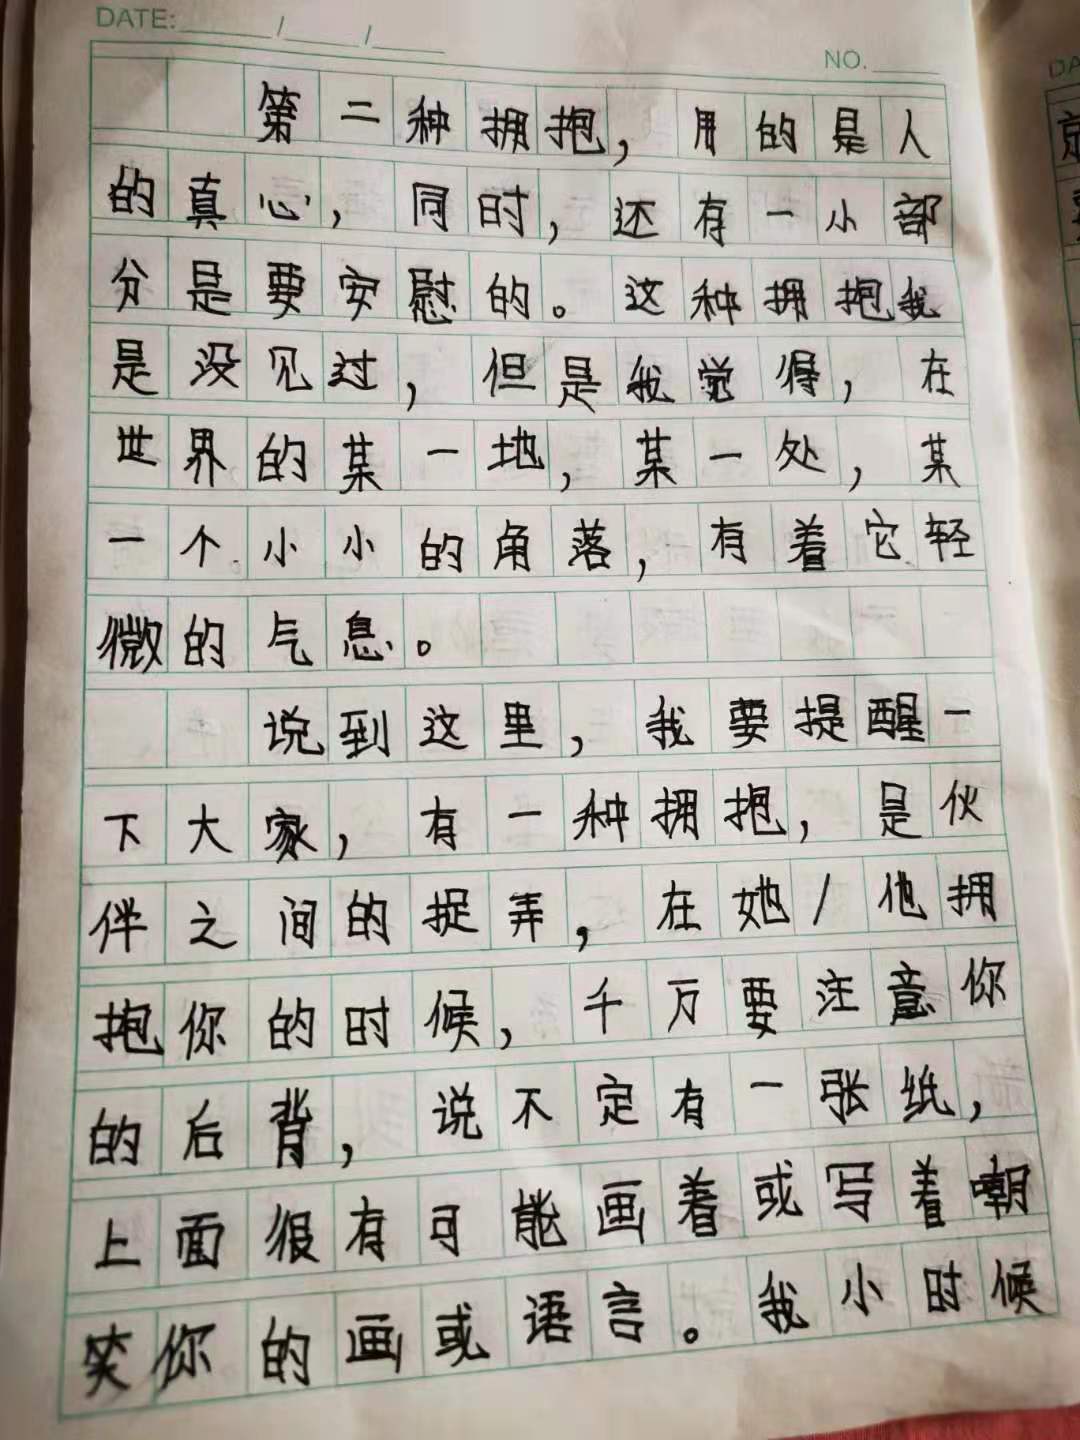 DATE: / /
NO.
第二种拥抱，用的是人
的真心，同时，还有一小部
分是要安慰的。这种拥抱我
是没见过，但是我觉得，在
世界的某一地，某一处，某
一个小小的角落，有着它轻
微的气息。
说到这里，我要提醒一
下大家，有一种拥抱，是伙
伴之间的捉弄，在她/他拥
抱你的时候，千万要注意你
的后背，说不定有一张纸，
上面很有可能画着或写着嘲
笑你的画或语言。我小时候